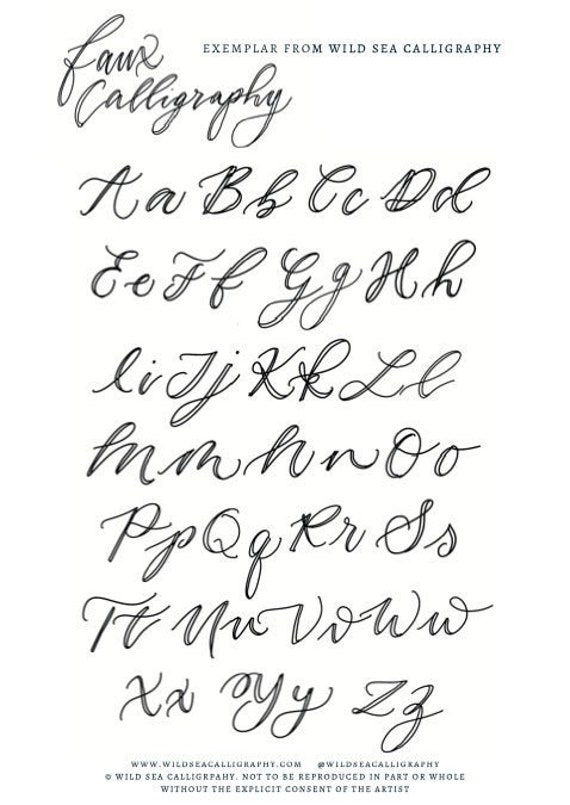 faux
Calligraphy
EXEMPLAR FROM WILD SEA CALLIGRAPHY
A a B b C c D d
E e F f G g H h
I i J j K k L l
M m N n O o
P p Q q R r S s
T t U u V v W w
X x Y y Z z
WWW.WILDSEACALLIGRAPHY.COM @WILDSEACALLIGRAPHY
© WILD SEA CALLIGRPAHY. NOT TO BE REPRODUCED IN PART OR WHOLE
WITHOUT THE EXPLICIT CONSENT OF THE ARTIST